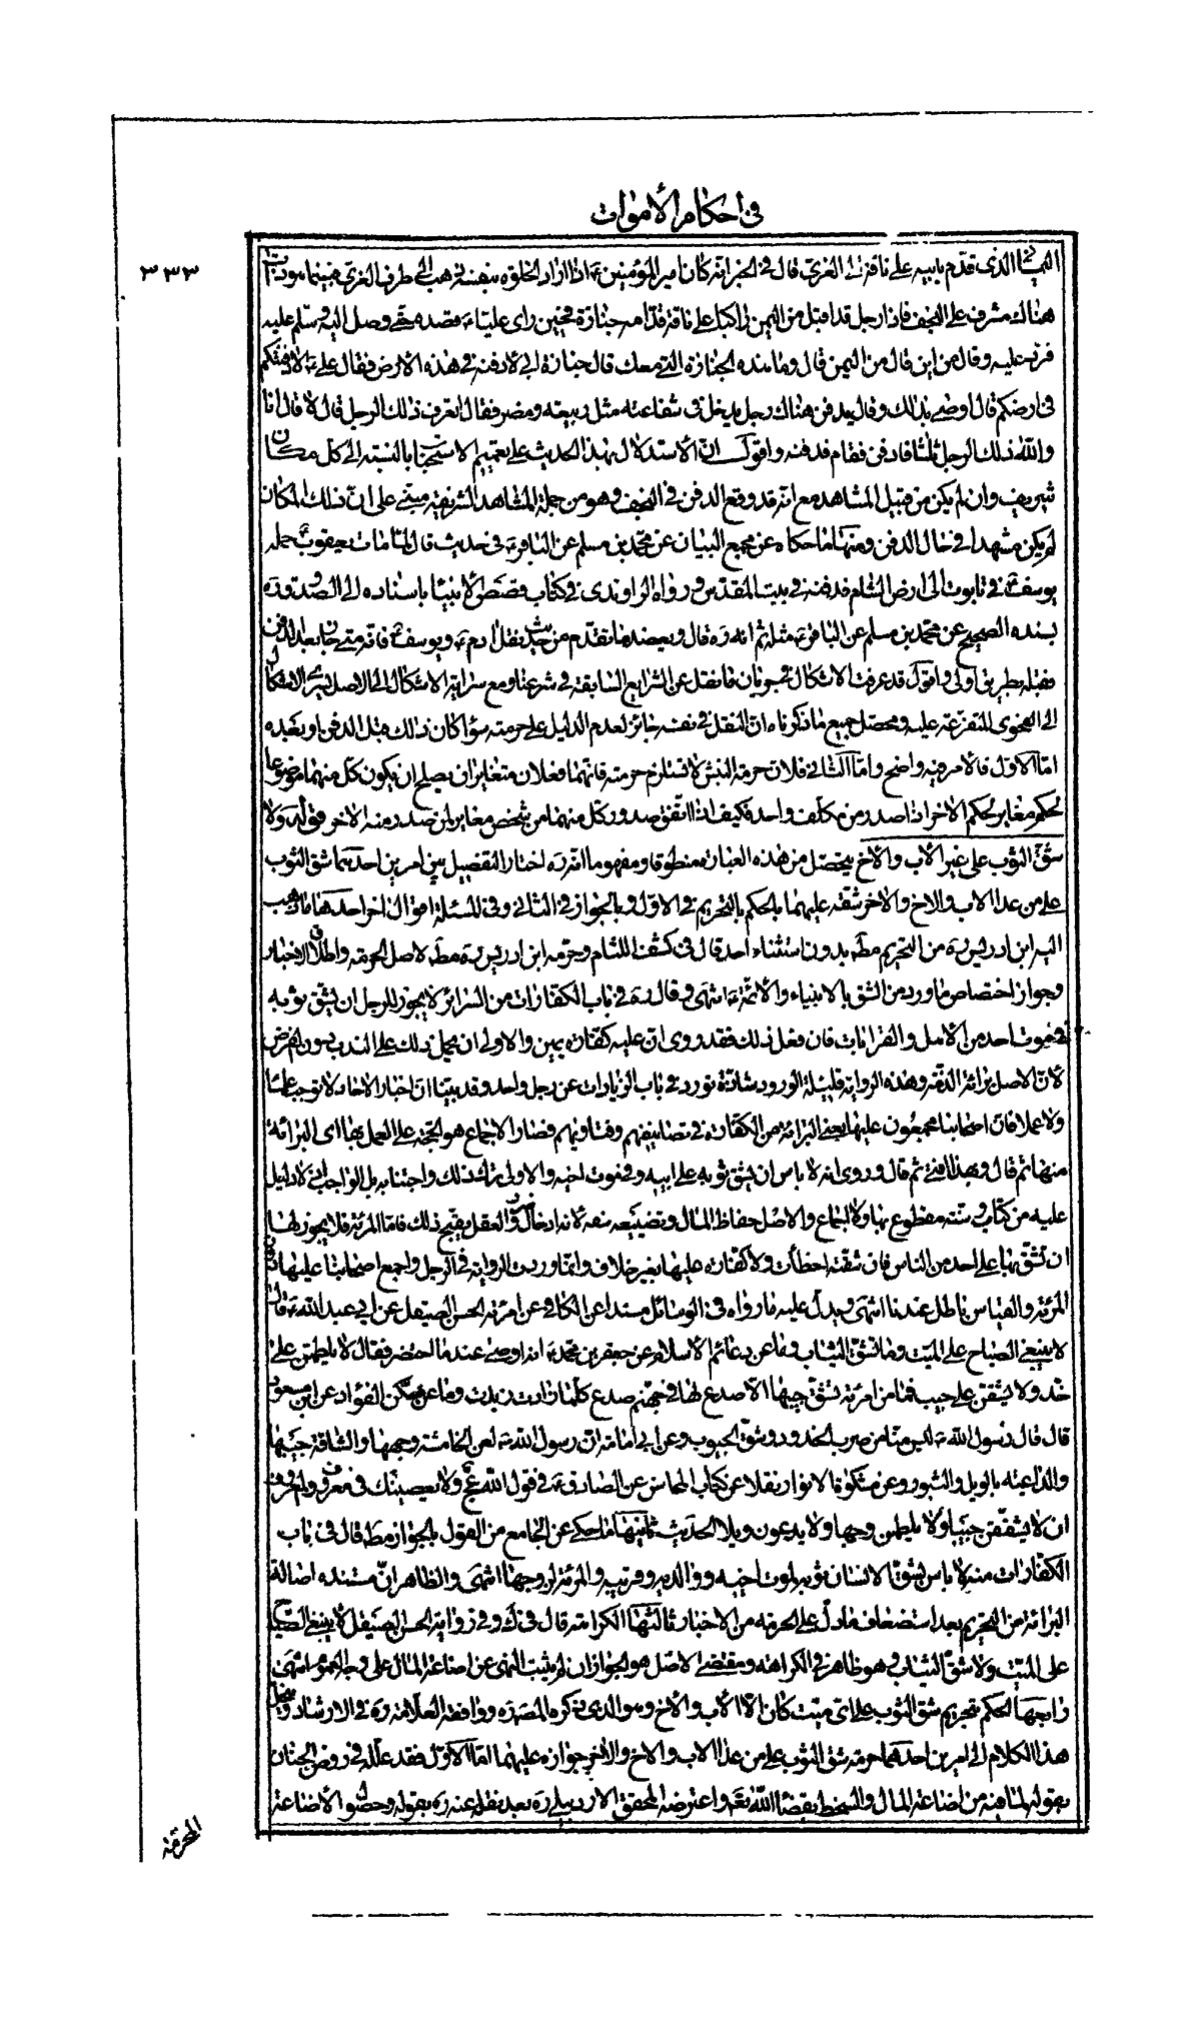 في احكام الأموات
٣٣٣
اليماني الذي قدم بابيه على ناقة الى الغري قال في الخبر انه كان امير المؤمنين ع اذا اراد الخلوة بنفسه ذهب الى طرف الغري فبينما هو ذات
هناك مشرف على النجف فاذا رجل قد اقبل من اليمن راكبا على ناقة قدامه جنازة فحين راى عليا ع قصده حتى وصل اليه وسلم عليه
فرد عليه وقال من اين قال من اليمن قال وما هذه الجنازة التي معك قال جنازة ابي لادفنه في هذه الارض فقال علي ع لم لا دفنته
في ارضكم قال اوصى بذلك وقال يدفن هناك رجل يدخل في شفاعته مثل ربيعة ومضر فقال اتعرف ذلك الرجل قال لا قال انا
والله ذلك الرجل ثلثا فادفن فقام فدفنه واقول ان الاستدلال بهذا الحديث على تعميم الاستحباب بالنسبة الى كل مكان
شريف وان لم يكن من قبيل المشاهد مع انه قد وقع الدفن في النجف وهو من جملة المشاهد الشريفة مبني على ان ذلك المكان
لم يكن مشهدا في حال الدفن ومنها ما حكاه عن مجمع البيان عن محمد بن مسلم عن الباقر ع في حديث قال لما مات يعقوب ع حمله
يوسف ع في تابوت الى ارض الشام فدفنه في بيت المقدس ورواه الراوندي في كتاب قصص الأنبيا باسناده الى الصدوق ره
بسنده الصحيح عن محمد بن مسلم عن الباقر ع مثله ثم انه ره قال ويعضده ما تقدم من حديث نقل ادم ع ويوسف ع فانه متى جاز بعد الدفن
فقبله بطريق اولى واقول قد عرفت الاشكال في جريان ما نقل عن الشرايع السابقة في شرعنا ومع سراية الاشكال الى الاصل يسري الاشكال
الى الفحوى المتفرعة عليه ومحصل جميع ما ذكرناه ان النقل في نفسه جائز لعدم الدليل على حرمته سواء كان ذلك قبل الدفن او بعده
اما الأول فالأمر فيه واضح واما الثاني فلان حرمة النبش لا تستلزم حرمته فانهما فعلان متغايران يصلح ان يكون كل منهما موضوعا
لحكم مغاير لحكم الاخر اذا صدر من مكلف واحد فكيف اذا اتفق صدور كل منهما من شخص مغاير لمن صدر منه الاخر قوله ولا
شق الثوب على غير الأب والأخ يتحصل من هذه العبارة منطوقا ومفهوما انه ره اختار التفصيل بين امرين احدهما شق الثوب
على من عدا الاب والاخ والاخر شقه عليهما بالحكم بالتحريم في الاول وبالجواز في الثاني وفي المسئلة اقوال اخر احدها ما ذهب
اليه ابن ادريس ره من التحريم مطلقا بدون استثناء احد قال في كشف اللثام وحرمه ابن ادريس ره مط لاصل الحرمة واطلاق الاخبار
وجواز اختصاص ما ورد من الشق بالانبياء والائمة ع انتهى وقال ره في باب الكفارات من السرائر لا يجوز للرجل ان يشق ثوبه
في موت احد من الأهل والقرابات فان فعل ذلك فقد روى ان عليه كفارة يمين والاولى ان يحمل ذلك على الندب دون الفرض
لان الاصل برائة الذمة وهذه الرواية قليلة الورود شاذة تورد في باب الزيادات عن رجل واحد وقد بينا ان اخبار الاحاد لا توجب علما
ولا عملا فان اصحابنا مجمعون عليها يعني البرائة من الكفارة في تصانيفهم وفتاويهم فصار الاجماع هو الحجة على العمل بها اى البرائة
منها ثم قال وبهذا افتى ثم قال وروى انه لا باس ان يشق ثوبه على ابيه وفي موت اخيه والاولى ترك ذلك واجتنابه بل الواجب لانه لا دليل
عليه من كتاب وسنة مقطوع بها ولا اجماع والاصل حفاظ المال وتضييعه سفه لانه ادخال ضرر والعقل يقبح ذلك فاما المرئة فلا يجوز لها
ان تشق ثوبها على احد من الناس فان شقته اخطأت ولا كفارة عليها بغير خلاف وانما وردت الرواية في الرجل واجمع اصحابنا عليها دون
المرئة والقياس باطل عندنا انتهى ويدل عليه ما رواه في الوسائل مسندا عن الكافي عن امرئة الحسن الصيقل عن ابي عبد الله ع قال
لا ينبغي الصياح على الميت ولا شق الثياب وما عن دعائم الاسلام عن جعفر بن محمد ع انه اوصى عندما احتضر فقال لا يلطمن علي
خد ولا يشقن علي جيب فما من امرئة تشق جيبها الا صدع لها في جهنم صدع كلما زادت زيدت وما عن مسكن الفؤاد عن ابن مسعود
قال قال رسول الله ص ليس منا من ضرب الخدود وشق الجيوب وعن ابي امامة ان رسول الله ص لعن الخامشة وجهها والشاقة جيبها
والداعية بالويل والثبور وعن مشكوة الانوار نقلا عن كتاب المحاسن عن الصادق ع في قول الله عز وجل ولا يعصينك في معروف المعروف
ان لا يشققن جيبا ولا يلطمن وجها ولا يدعون ويلا الحديث ثانيها ما حكى عن الجامع من القول بالجواز مط قال في باب
الكفارات منه لا باس بشق الانسان ثوبه لموت اخيه ووالديه وقريبه والمرئة لزوجها انتهى والظاهر ان مستنده اصالة
البرائة من التحريم بعد استضعاف ما دل على الحرمة من الاخبار ثالثها الكراهة قال في ك وفي رواية الحسن الصيقل لا ينبغي الصياح
على الميت ولا شق الثياب وهو ظاهر في الكراهة ومقتضى الاصل هو الجواز ان لم يثبت النهى عن اضاعة المال على وجه العموم انتهى
رابعها الحكم بتحريم شق الثوب على اى ميت كان الا الأب والأخ وهو الذي ذكره المصنف ره ووافقه العلامة ره في الارشاد وينحل
هذا الكلام الى امرين احدهما حرمة شق الثوب على من عدا الاب والاخ والأخر جوازه عليهما اما الأول فقد علله في روض الجنان
بقوله لما فيه من اضاعة المال والسخط بقضاء الله تعالى واعترضه المحقق الاردبيلي ره بعد نقله عنه ره بقوله وحصول الأضاعة
المحرمة